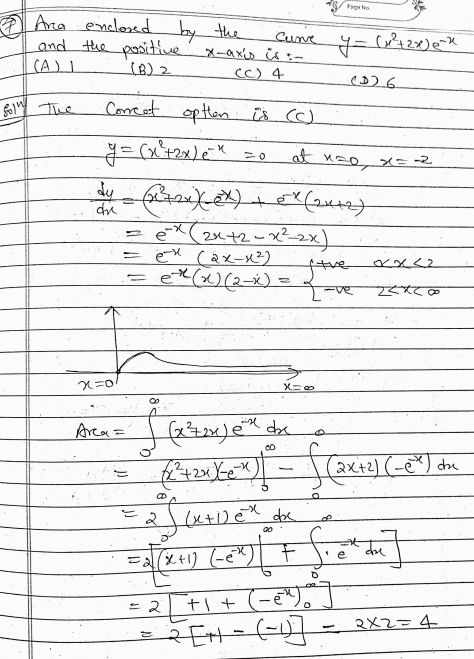 Page No.
(7) Area enclosed by the curve y = (x²+2x)e⁻ˣ
and the positive x-axis is :-
(A) 1 (B) 2 (C) 4 (D) 6
Solⁿ The Correct option is (C)
y = (x²+2x) e⁻ˣ = 0 at x=0, x = -2
dy/dx = (x²+2x)(-e⁻ˣ) + e⁻ˣ (2x+2)
= e⁻ˣ (2x+2 - x² - 2x)
= e⁻ˣ (2x - x²)
= e⁻ˣ (x) (2-x) = { +ve 0<x<2
-ve 2<x<∞
x=0 x=∞
Area = ∫₀^∞ (x²+2x) e⁻ˣ dx
= (x²+2x)(-e⁻ˣ)|₀^∞ - ∫₀^∞ (2x+2) (-e⁻ˣ) dx
= 2 ∫₀^∞ (x+1) e⁻ˣ dx
= 2 [(x+1) (-e⁻ˣ)|₀^∞ + ∫₀^∞ e⁻ˣ dx]
= 2 [+1 + (-e⁻ˣ)₀^∞]
= 2 [+1 - (-1)] = 2×2 = 4